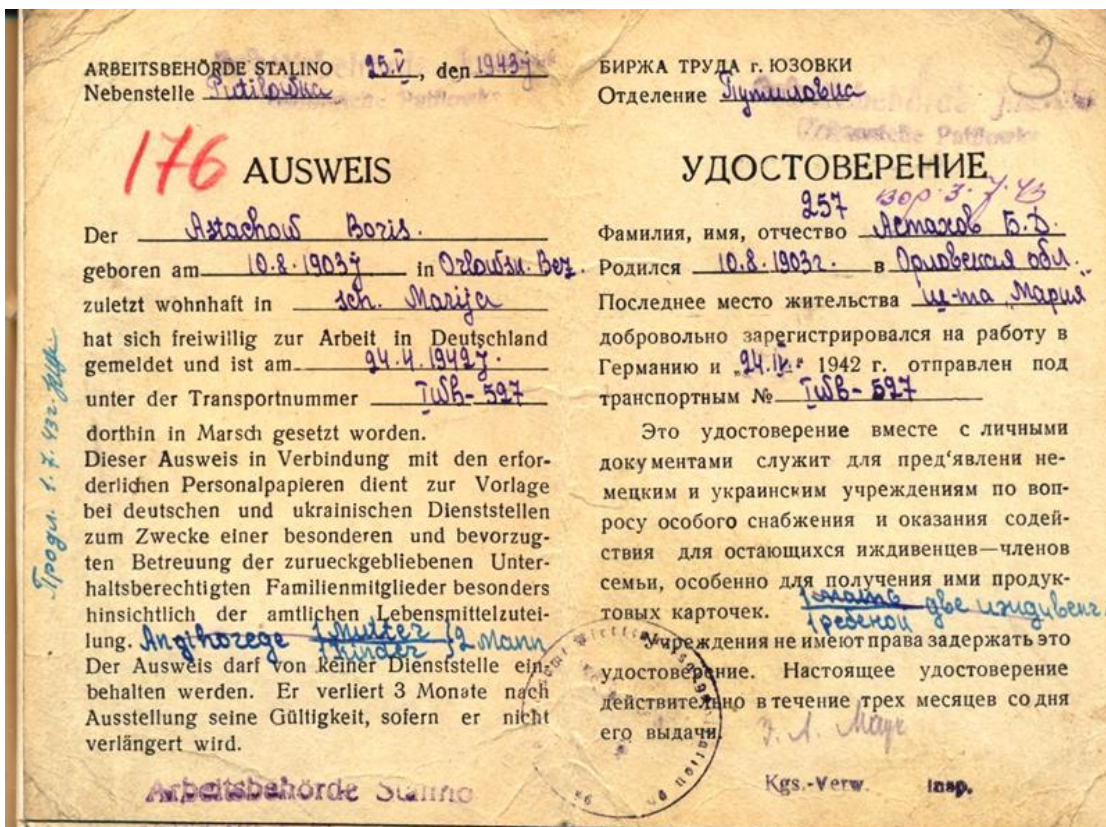 ARBEITSBEHÖRDE STALINO 25.V, den 1943j
Nebenstelle Putilowka
176
AUSWEIS
Der Astachow Boris.
geboren am 10.8.1903j in Orlowsk. Bez.
zuletzt wohnhaft in sch. Marija
hat sich freiwillig zur Arbeit in Deutschland
gemeldet und ist am 24.4.1942j
unter der Transportnummer Iwb-527
dorthin in Marsch gesetzt worden.
Dieser Ausweis in Verbindung mit den erfor-
derlichen Personalpapieren dient zur Vorlage
bei deutschen und ukrainischen Dienststellen
zum Zwecke einer besonderen und bevorzug-
ten Betreuung der zurueckgebliebenen Unter-
haltsberechtigten Familienmitglieder besonders
hinsichtlich der amtlichen Lebensmittelzutei-
lung. Angihorege 1 Mutter 1 Kinder } 2 Mann
Der Ausweis darf von keiner Dienststelle ein-
behalten werden. Er verliert 3 Monate nach
Ausstellung seine Gültigkeit, sofern er nicht
verlängert wird.
Arbeitsbehörde Stalino
Продл. 1.7.43г.
3
БИРЖА ТРУДА г. ЮЗОВКИ
Отделение Путиловка
УДОСТОВЕРЕНИЕ
257 3.7.43
Фамилия, имя, отчество Астахов Б.Д.
Родился 10.8.1903г. в Орловская обл.
Последнее место жительства ш-та „Мария
добровольно зарегистрировался на работу в
Германию и „24.IV“ 1942 г. отправлен под
транспортным № Iwb-527
Это удостоверение вместе с личными
документами служит для пред‘явлени не-
мецким и украинским учреждениям по воп-
росу особого снабжения и оказания содей-
ствия для остающихся иждивенцев—членов
семьи, особенно для получения ими продук-
товых карточек. 1 мать 1 ребенок две иждивенц.
Учреждения не имеют права задержать это
удостоверение. Настоящее удостоверение
действительно в течение трех месяцев со дня
его выдачи.
Kgs.-Verw. Insp.